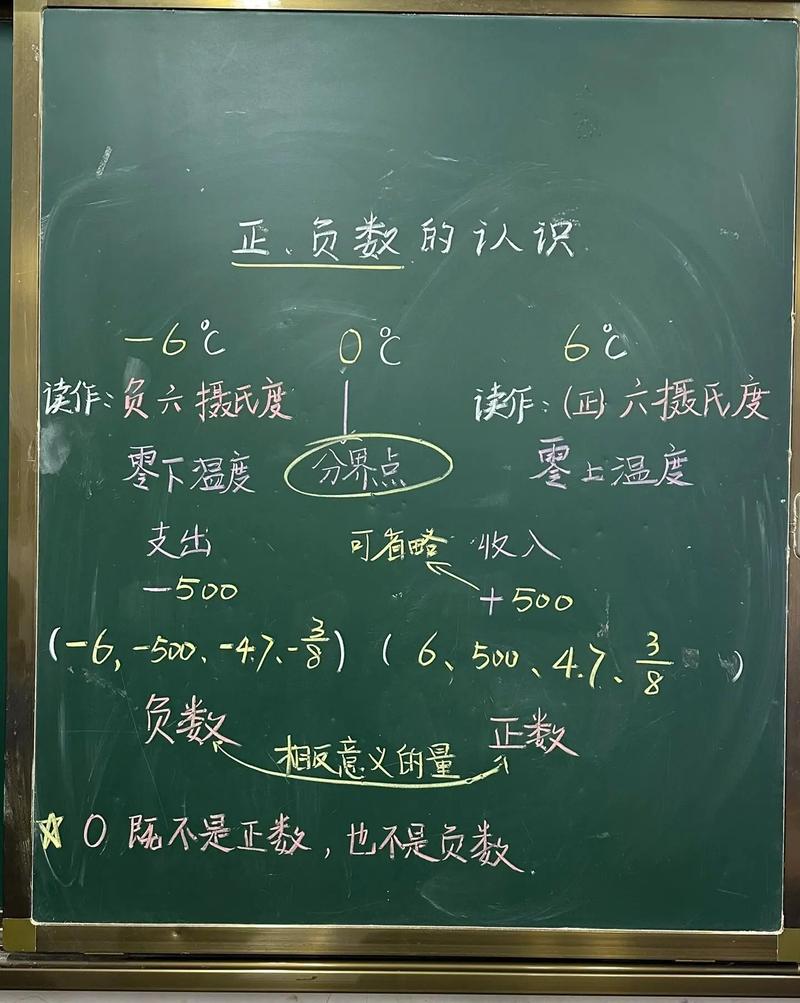 正、负数的认识
-6℃ 0℃ 6℃
读作:负六摄氏度 读作:(正)六摄氏度
零下温度 分界点 零上温度
支出 可省略 收入
-500 +500
(-6、-500、-4.7、-3/8) (6、500、4.7、3/8 )
负数 相反意义的量 正数
☆ 0既不是正数,也不是负数